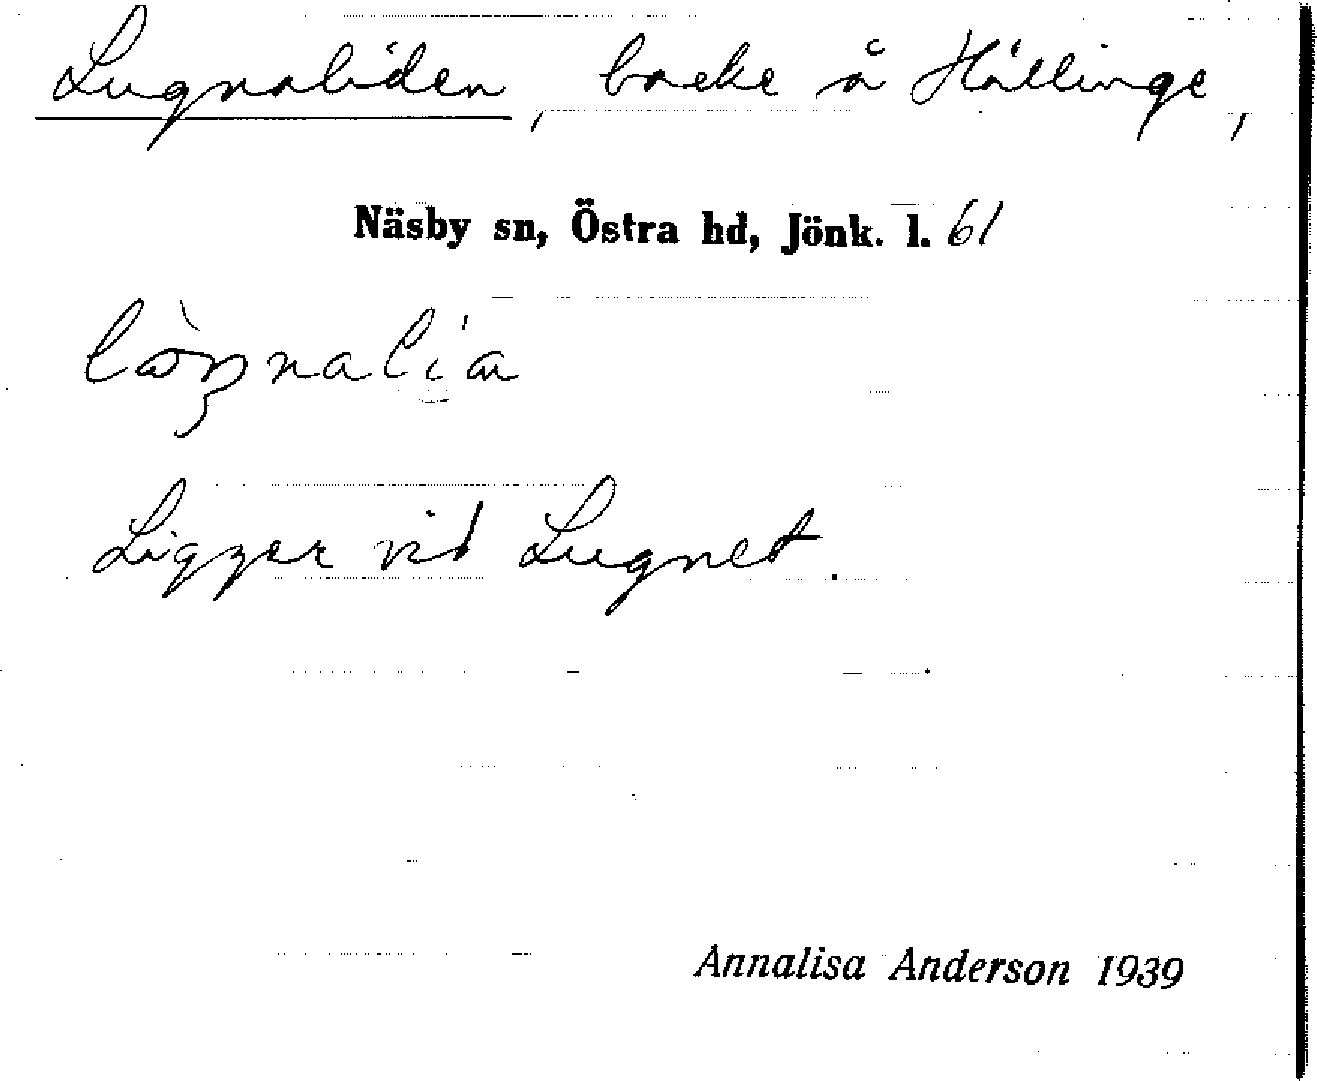 Lugnaliden, backe å Hällinge,
Näsby sn, Östra hd, Jönk. l. 61
Ligger vid Lugnet.
Annalisa Anderson 1939